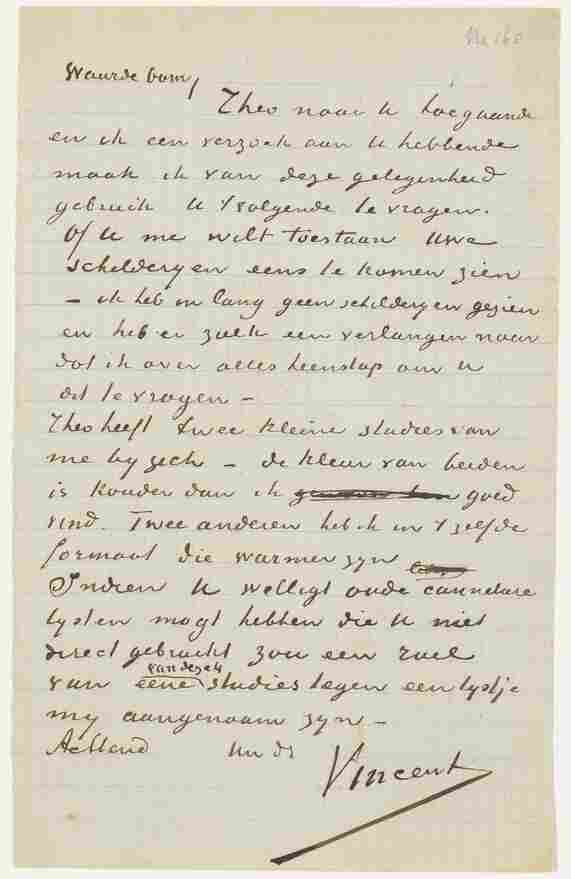 No 168
Waarde oom,
Theo naar U toegaande
en ik een verzoek aan U hebbende
maak ik van deze gelegenheid
gebruik U 't volgende te vragen.
Of U me wilt toestaan Uwe
schilderyen eens te komen zien
– ik heb in lang geen schilderyen gezien
en heb er zoek een verlangen naar
dat ik over alles heenstap om U
dit te vragen –
Theo heeft twee kleine studies van
me by zich – de kleur van beiden
is kouder dan ik goed
vind. Twee anderen heb ik in 't zelfde
formaat die warmer zyn
Indien U welligt oude cannelure
lysten mogt hebben die U niet
direct gebruikt zou een ruil
van dezer
van eene studies tegen een lystje
my aangenaam zyn –
Achtend Uw dr
Vincent